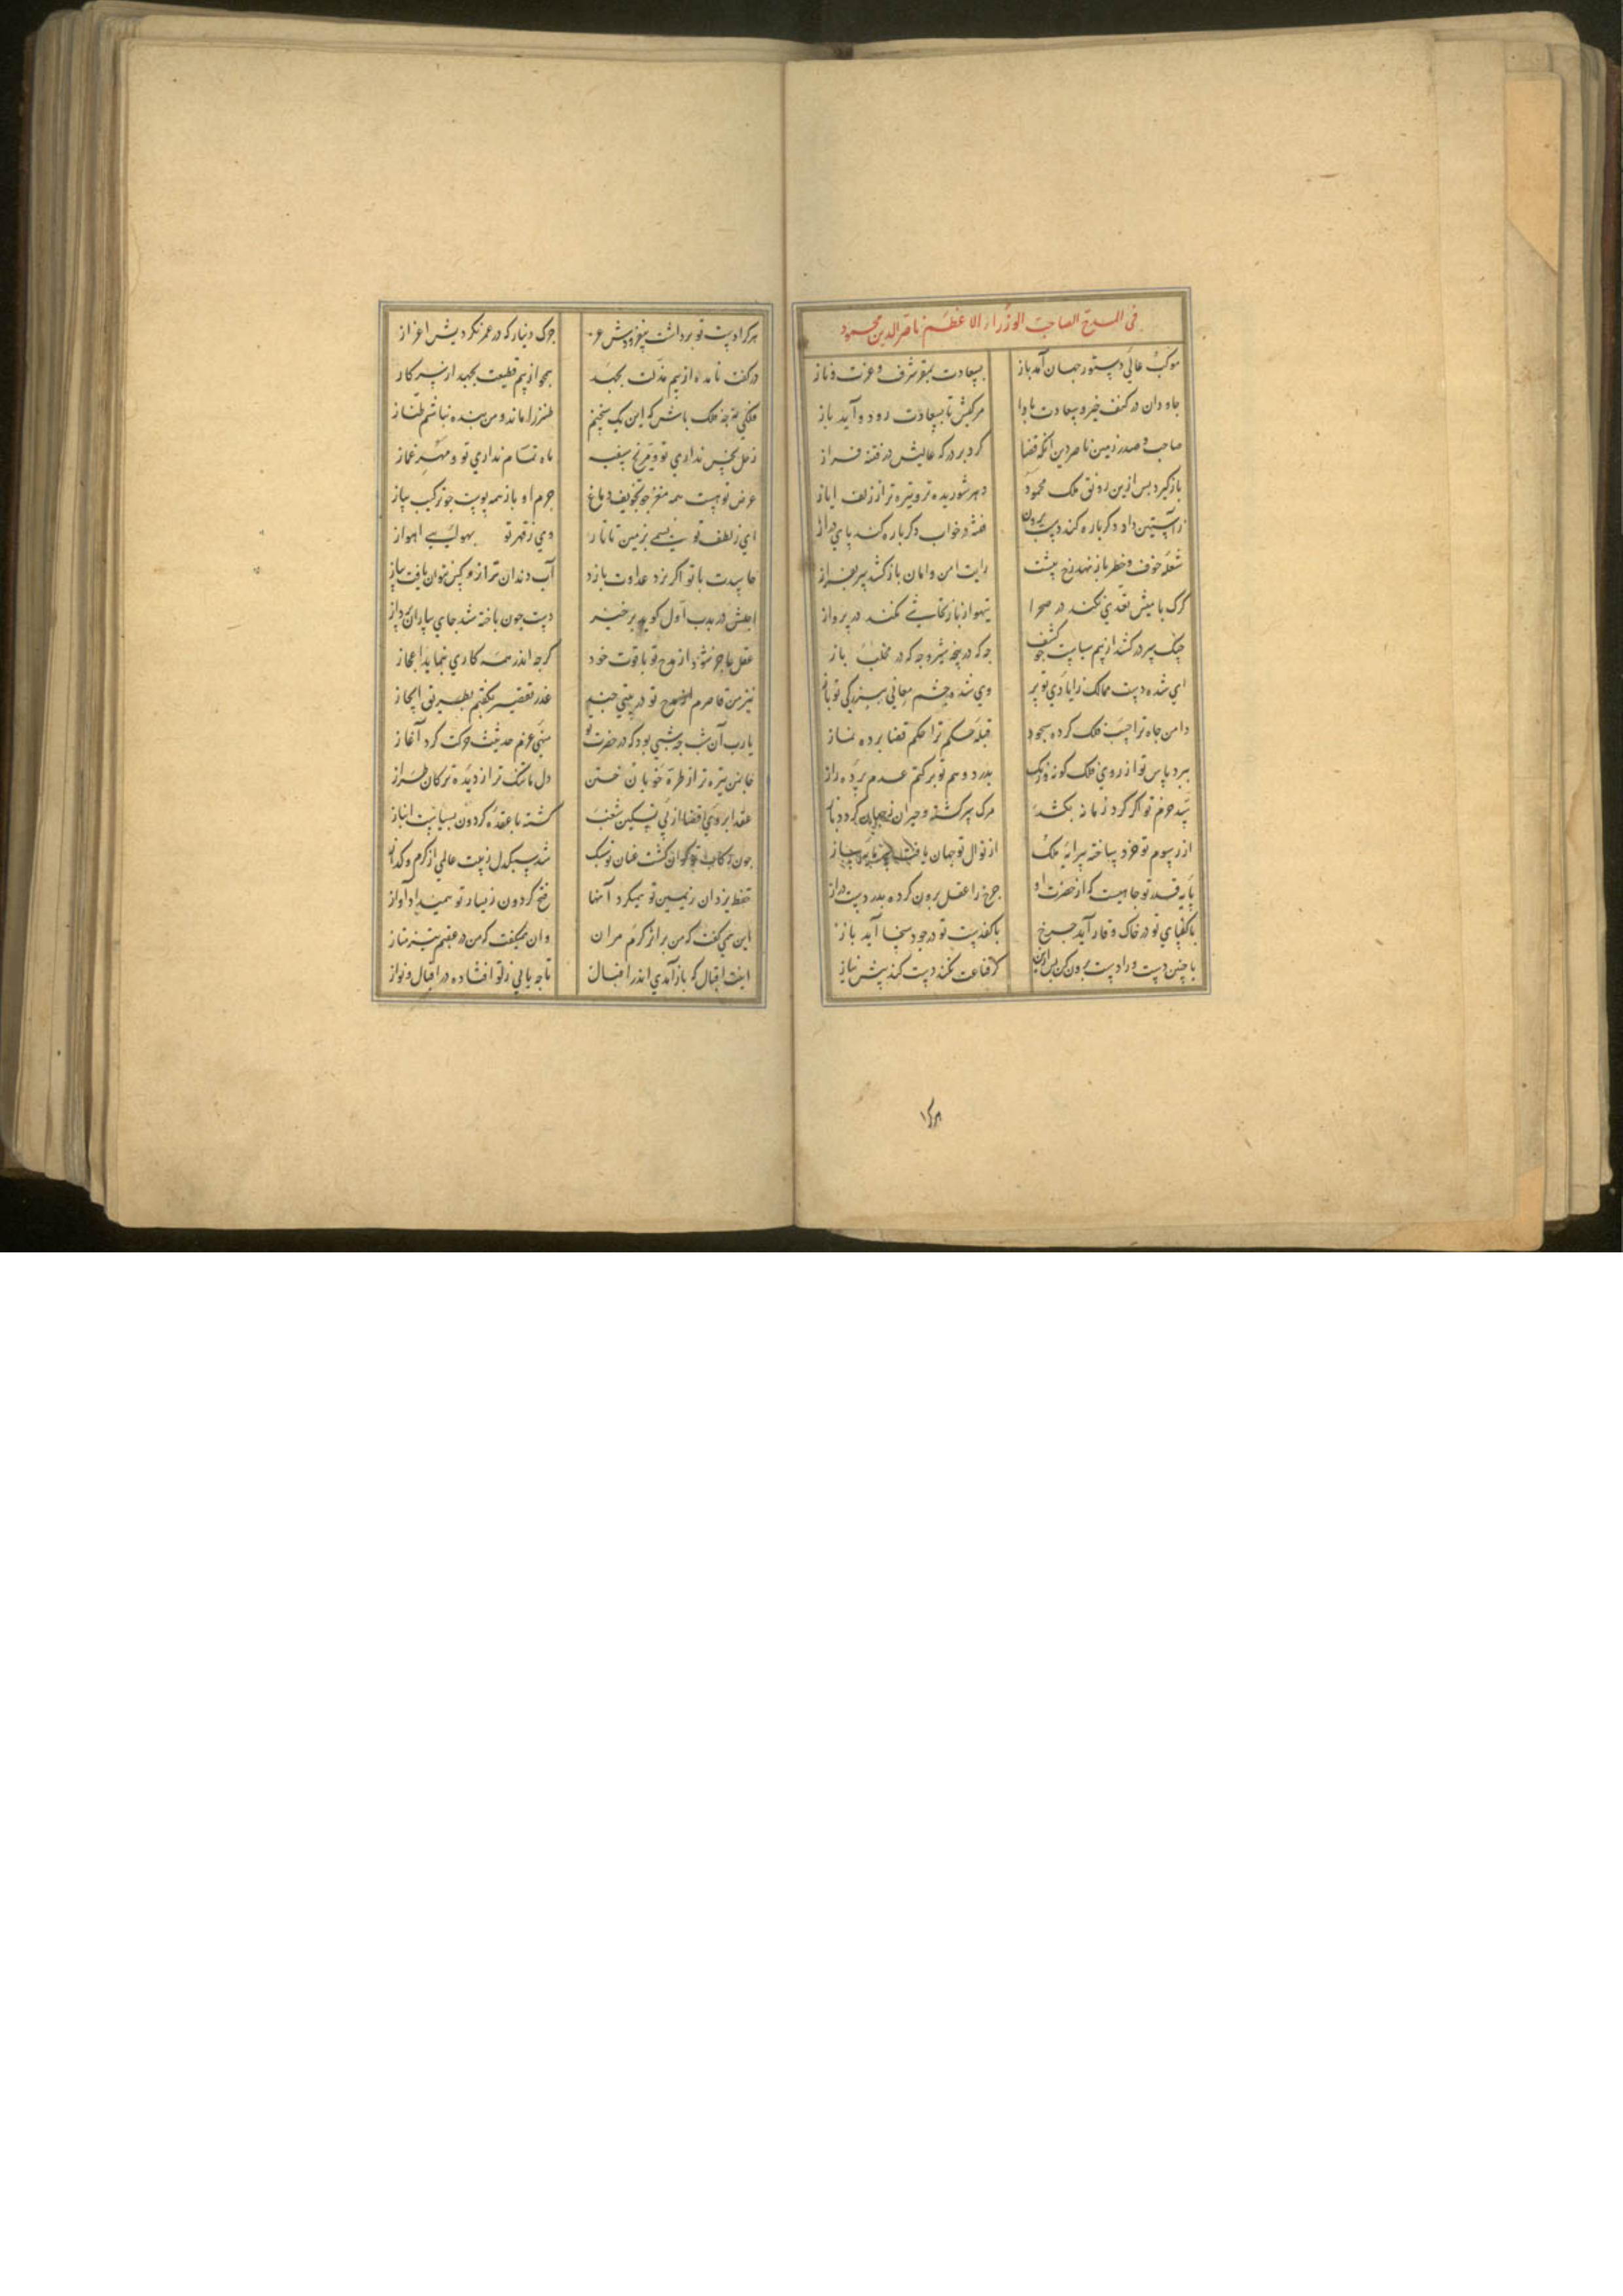 فی المدح الصاحب الوزراء الاعظم ناصرالدین محمود
موکب عالی دستور جهان آمد باز بسعادت بمقر شرف و عزت و ناز
جاودان در کنف خیر و سعادت بادا مرکبش تا بسعادت رود و آید باز
صاحب و صدر زمین ناصر دین آنکه قضا کرد بر درکه عالیش در فتنه فراز
بازکیرد پس ازین رونق ملک محمود دهر شوریده تر و تیره تر از زلف ایاز
زآستین داد دکرباره کند دست برون فتنه در خواب دکرباره کند پای دراز
شعله خوف و خطر باز نهد رخ بنشست رایت امن و امان باز کشد سر بفراز
کرک با میش تعدی نکند در صحرا تیهو از باز تحاشی نکند در پرواز
جنک سر در کشد از بیم سیاست جو کشف جه که در پنجه شیر و جه که در مخلب باز
ای شده دست ممالک ز ایادی تو پر وی شده چشم معانی ببزرکی تو باز
دامن جاه ترا جیب فلک کرده سجود قبله حکم ترا حکم قضا برده نماز
ببرد پاس تو از روی فلک کونه و رنک بدرد وهم تو بر کتم عدم پرده راز
سد حزم تو اکر کرد زمانه بکشد مرک سرکشته و حیران ز جهان کردد باز
از رسوم تو خرد ساخته پیرایه ملک از نوال تو جهان یافته سرمایه و ساز
پایه قدر تو جاییست که از حضرت او جرخ را عقل برون کرده بدر دست دراز
با کف پای تو در خاک وقار آید جرخ با کف دست تو در جود سخا آید باز
با چنین دست و را دست برون کن پس ازین کر قناعت نکند دست کند پیش نیاز
هر کرا دست تو برداشت بیفزودش عز جزک دینار که در عمر نکردیش اعزاز
در کفت نامده از بیم مذلت بجهد همجو از بیم قطیعت بجهد از سر کاز
فلکی نه جه فلک باش که این یک سخنم طنز را ماند و من بنده نباشم طناز
زحل نحس نداری تو و مریخ سفیه ماه نمام نداری تو و مهر غماز
عرض تو هست همه مغز جو تجویف دماغ جرم او باز همه پوست جو ترکیب پیاز
ای ز لطف تو نسیمی بزمین تاتار وی ز قهر تو سمومی بهوای اهواز
حاسدت با تو اکر نرد عداوت بازد آب دندان تر ازو کس نتوان یافت بباز
اجلش در ندب اول کوید برخیز دست جون باخته شد جای بیاران پرداز
عقل عاجز شود از مدح تو با قوت خود کرجه اندر همه کاری بنماید اعجاز
نیز من قاصرم از مدح تو در بیتی جند عذر تقصیر بکفتم بطریق ایجاز
یارب آن شب جه شبی بود که در حضرت تو منهی عزم حدیث حرکت کرد آغاز
جانمن تیره تر از طره خوبان ختن دل ما تنک تر از دیده ترکان طراز
عقد ابروی قضا از پی تسکین شغب کشته با عقده کردون بسیاست انباز
جون رکاب تو کران کشت عنان تو سبک شد سبکدل ز پیت عالمی از کرم و کداز
حفظ یزدان ز یمین تو همیکرد آنها فتح کردون ز یسار تو همیداد آواز
این همی کفت که من برانر کرم مران وان همیکفت که من در عقبم تیز متاز
اینت اقبال که باز آمدی اندر اقبال تا جه باالی ز تو افتاده در اقبال و نواز